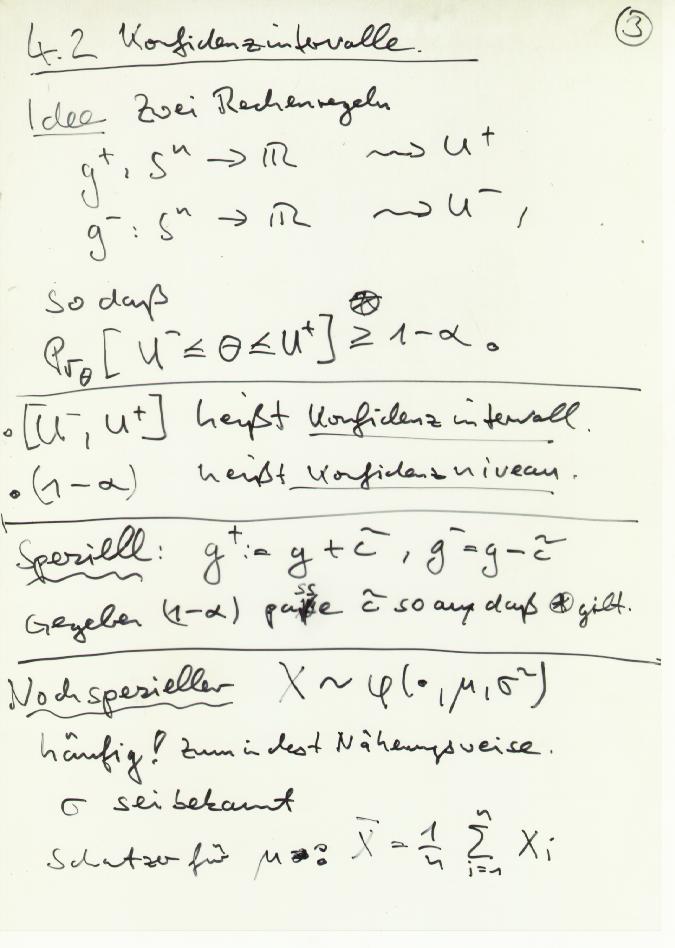 ③
4.2 Konfidenzintervalle.
Idee Zwei Rechenregeln
g⁺: Sⁿ → ℝ ⇝ U⁺
g⁻: Sⁿ → ℝ ⇝ U⁻,
so daß ⊛
P_{Γ_θ} [U⁻ ≤ θ ≤ U⁺] ≥ 1-α.
• [U⁻, U⁺] heißt Konfidenzintervall.
• (1-α) heißt Konfidenzniveau.
Speziell: g⁺ := g + c̃, g⁻ = g - c̃
Gegeben (1-α) passe c̃ so an, daß ⊛ gilt.
Noch spezieller X ~ φ(•, μ, σ²)
häufig! Zumindest Näherungsweise.
σ sei bekannt
Schätzer für μ: X̄ = 1/n ∑_{i=1}^{n} Xᵢ